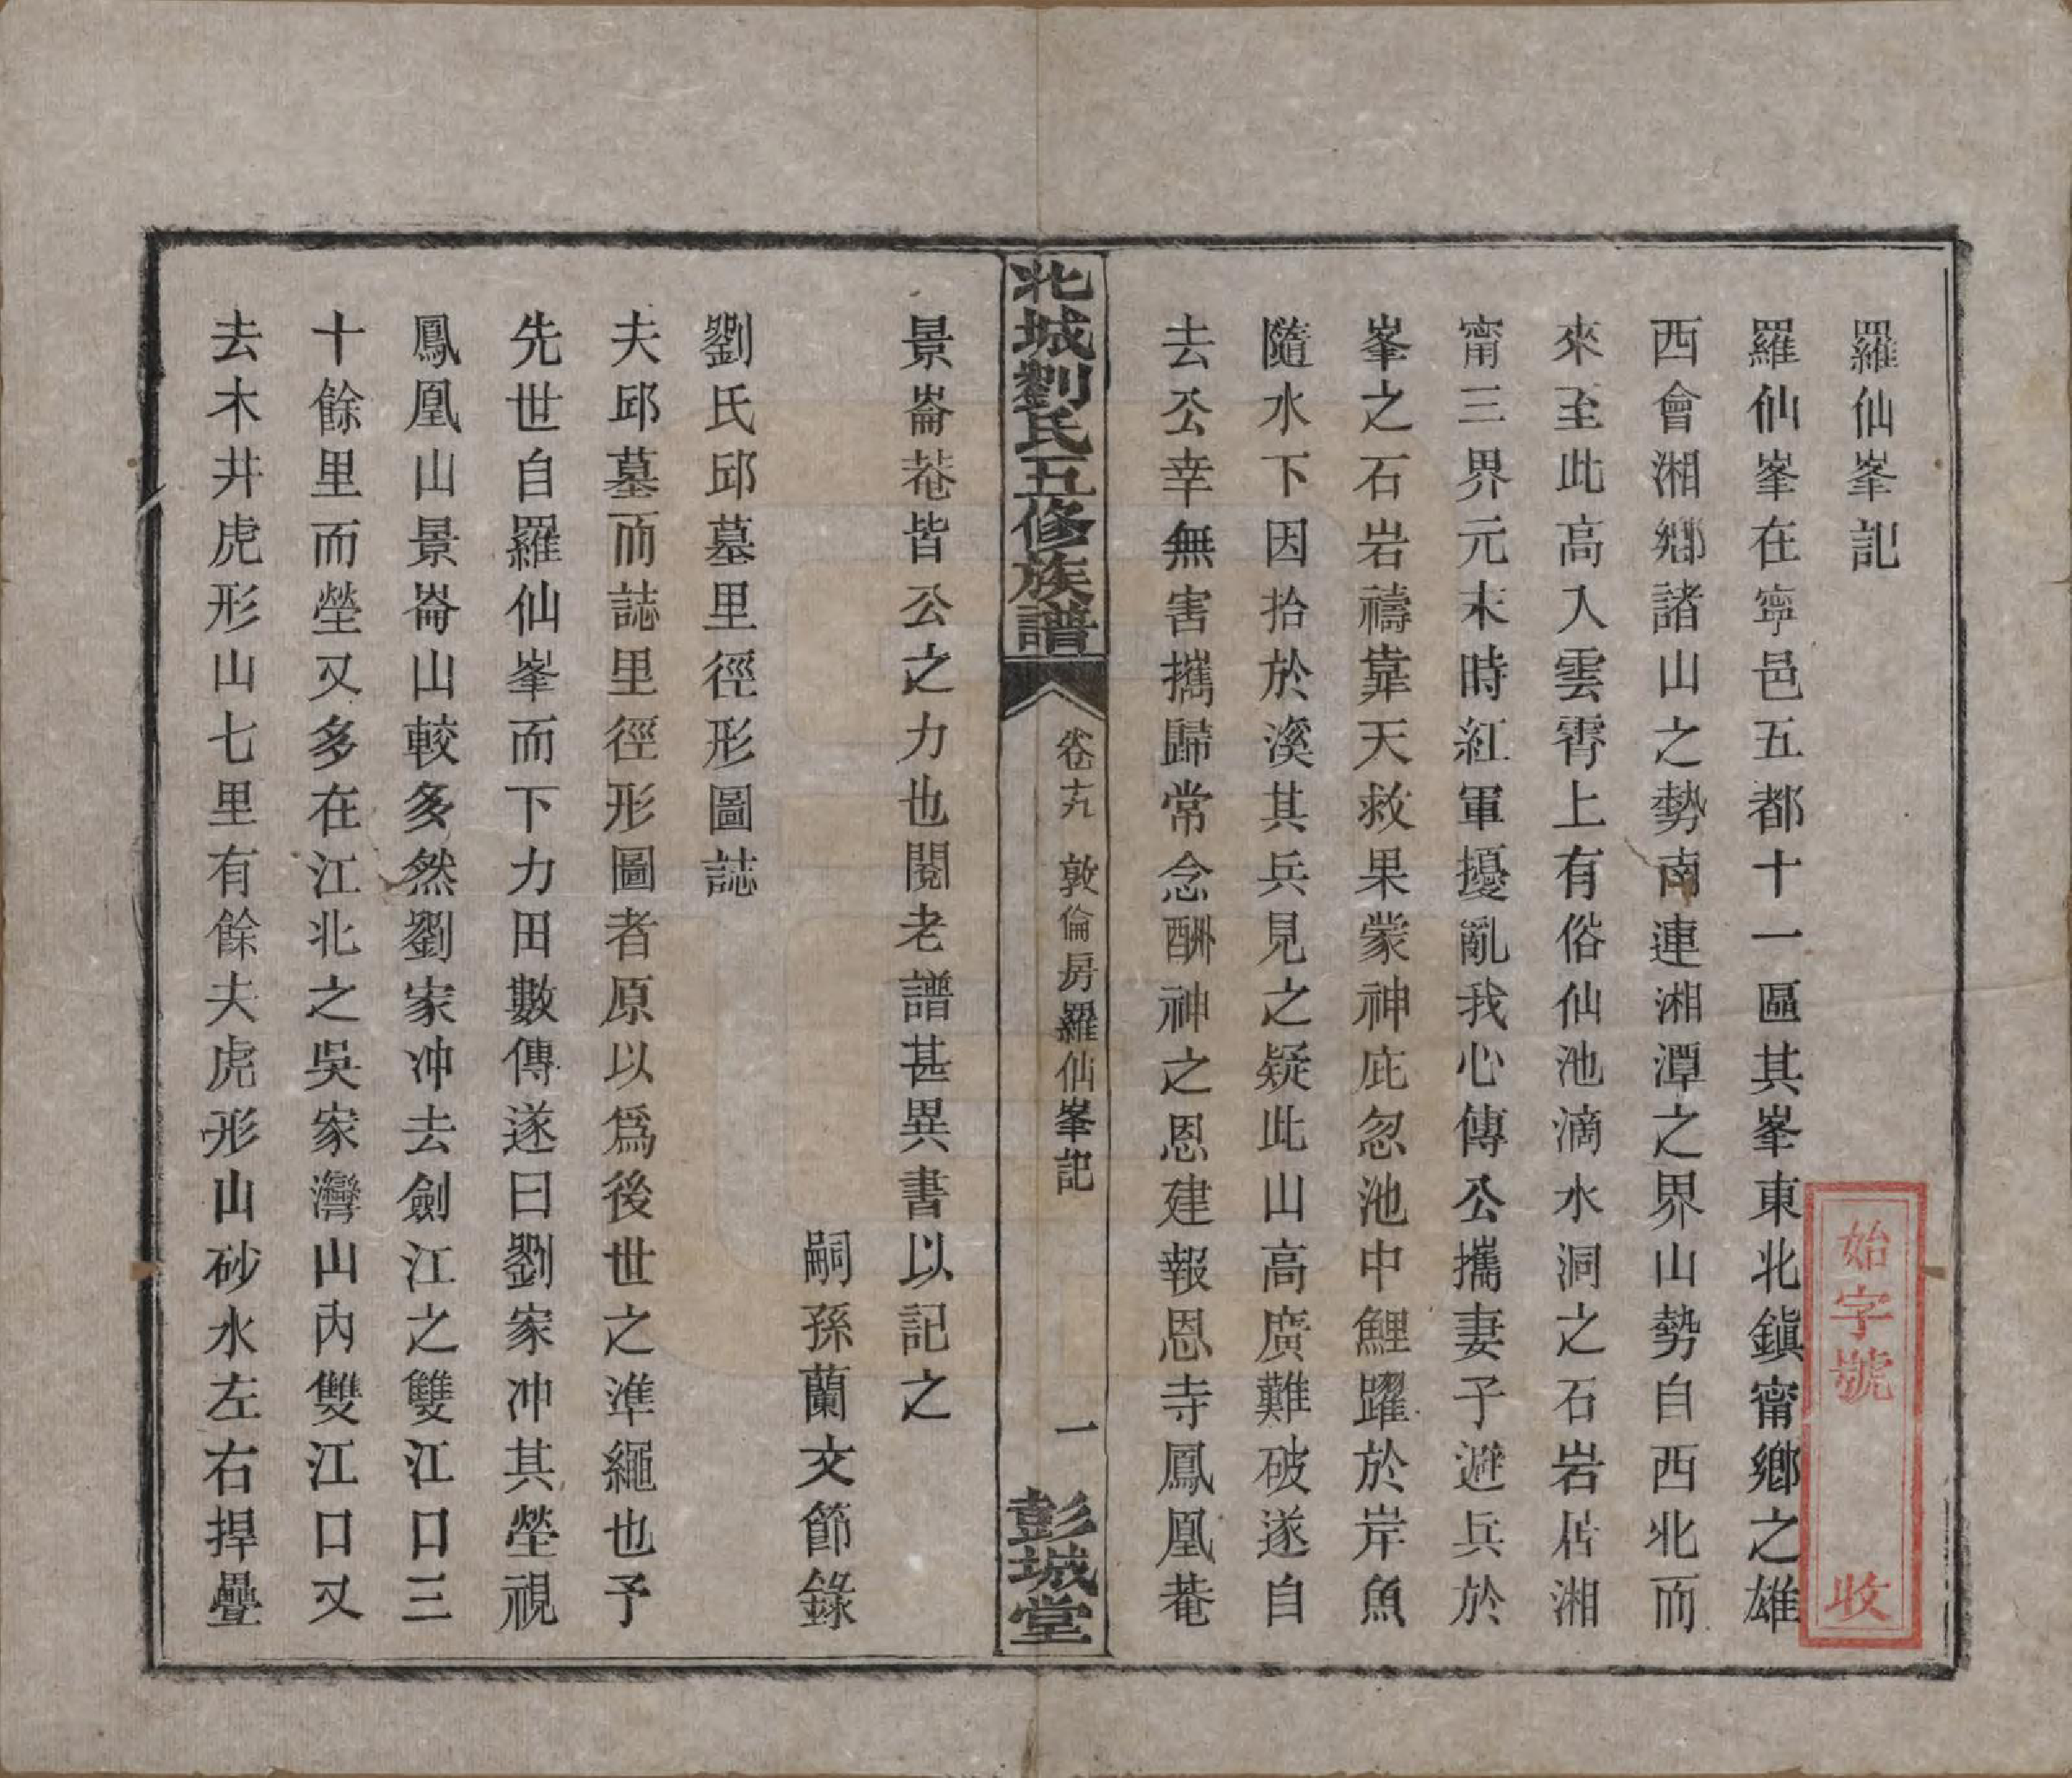 羅仙峯記
羅仙峯在寧邑五都十一區其峯東北鎭甯鄕之雄
西會湘鄕諸山之勢南連湘潭之界山勢自西北而
來至此高入雲霄上有俗仙池滴水洞之石岩居湘
甯三界元末時紅軍擾亂我心傳公攜妻子避兵於
峯之石岩禱靠天救果蒙神庇忽池中鯉躍於岸魚
隨水下因拾於溪其兵見之疑此山高廣難破遂自
去公幸無害攜歸常念酬神之恩建報恩寺鳳凰菴
北城劉氏五修族譜
卷十九
敦倫房羅仙峯記
一
彭城堂
景崙菴皆公之力也閱老譜甚異書以記之
嗣孫蘭文節錄
劉氏邱墓里徑形圖誌
夫邱墓而誌里徑形圖者原以爲後世之準繩也予
先世自羅仙峯而下力田數傳遂曰劉家冲其塋視
鳳凰山景崙山較多然劉家冲去劍江之雙江口三
十餘里而塋又多在江北之吳家灣山內雙江口又
去木井虎形山七里有餘夫虎形山砂水左右捍疊
始字號
收